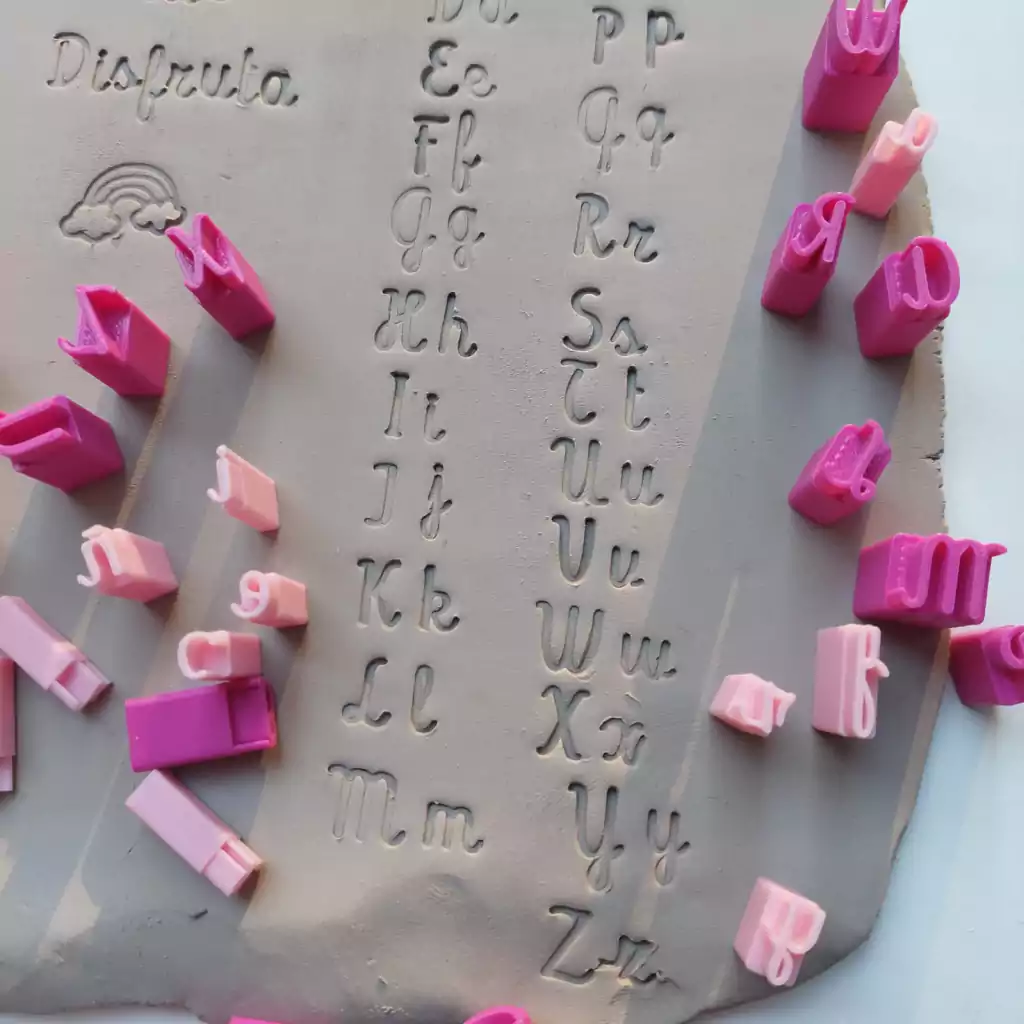 Disfruta
Dd
Ee
Ff
Gg
Hh
Ii
Jj
Kk
Ll
Mm
Pp
Qq
Rr
Ss
Tt
Uu
Vv
Ww
Xx
Yy
Zz